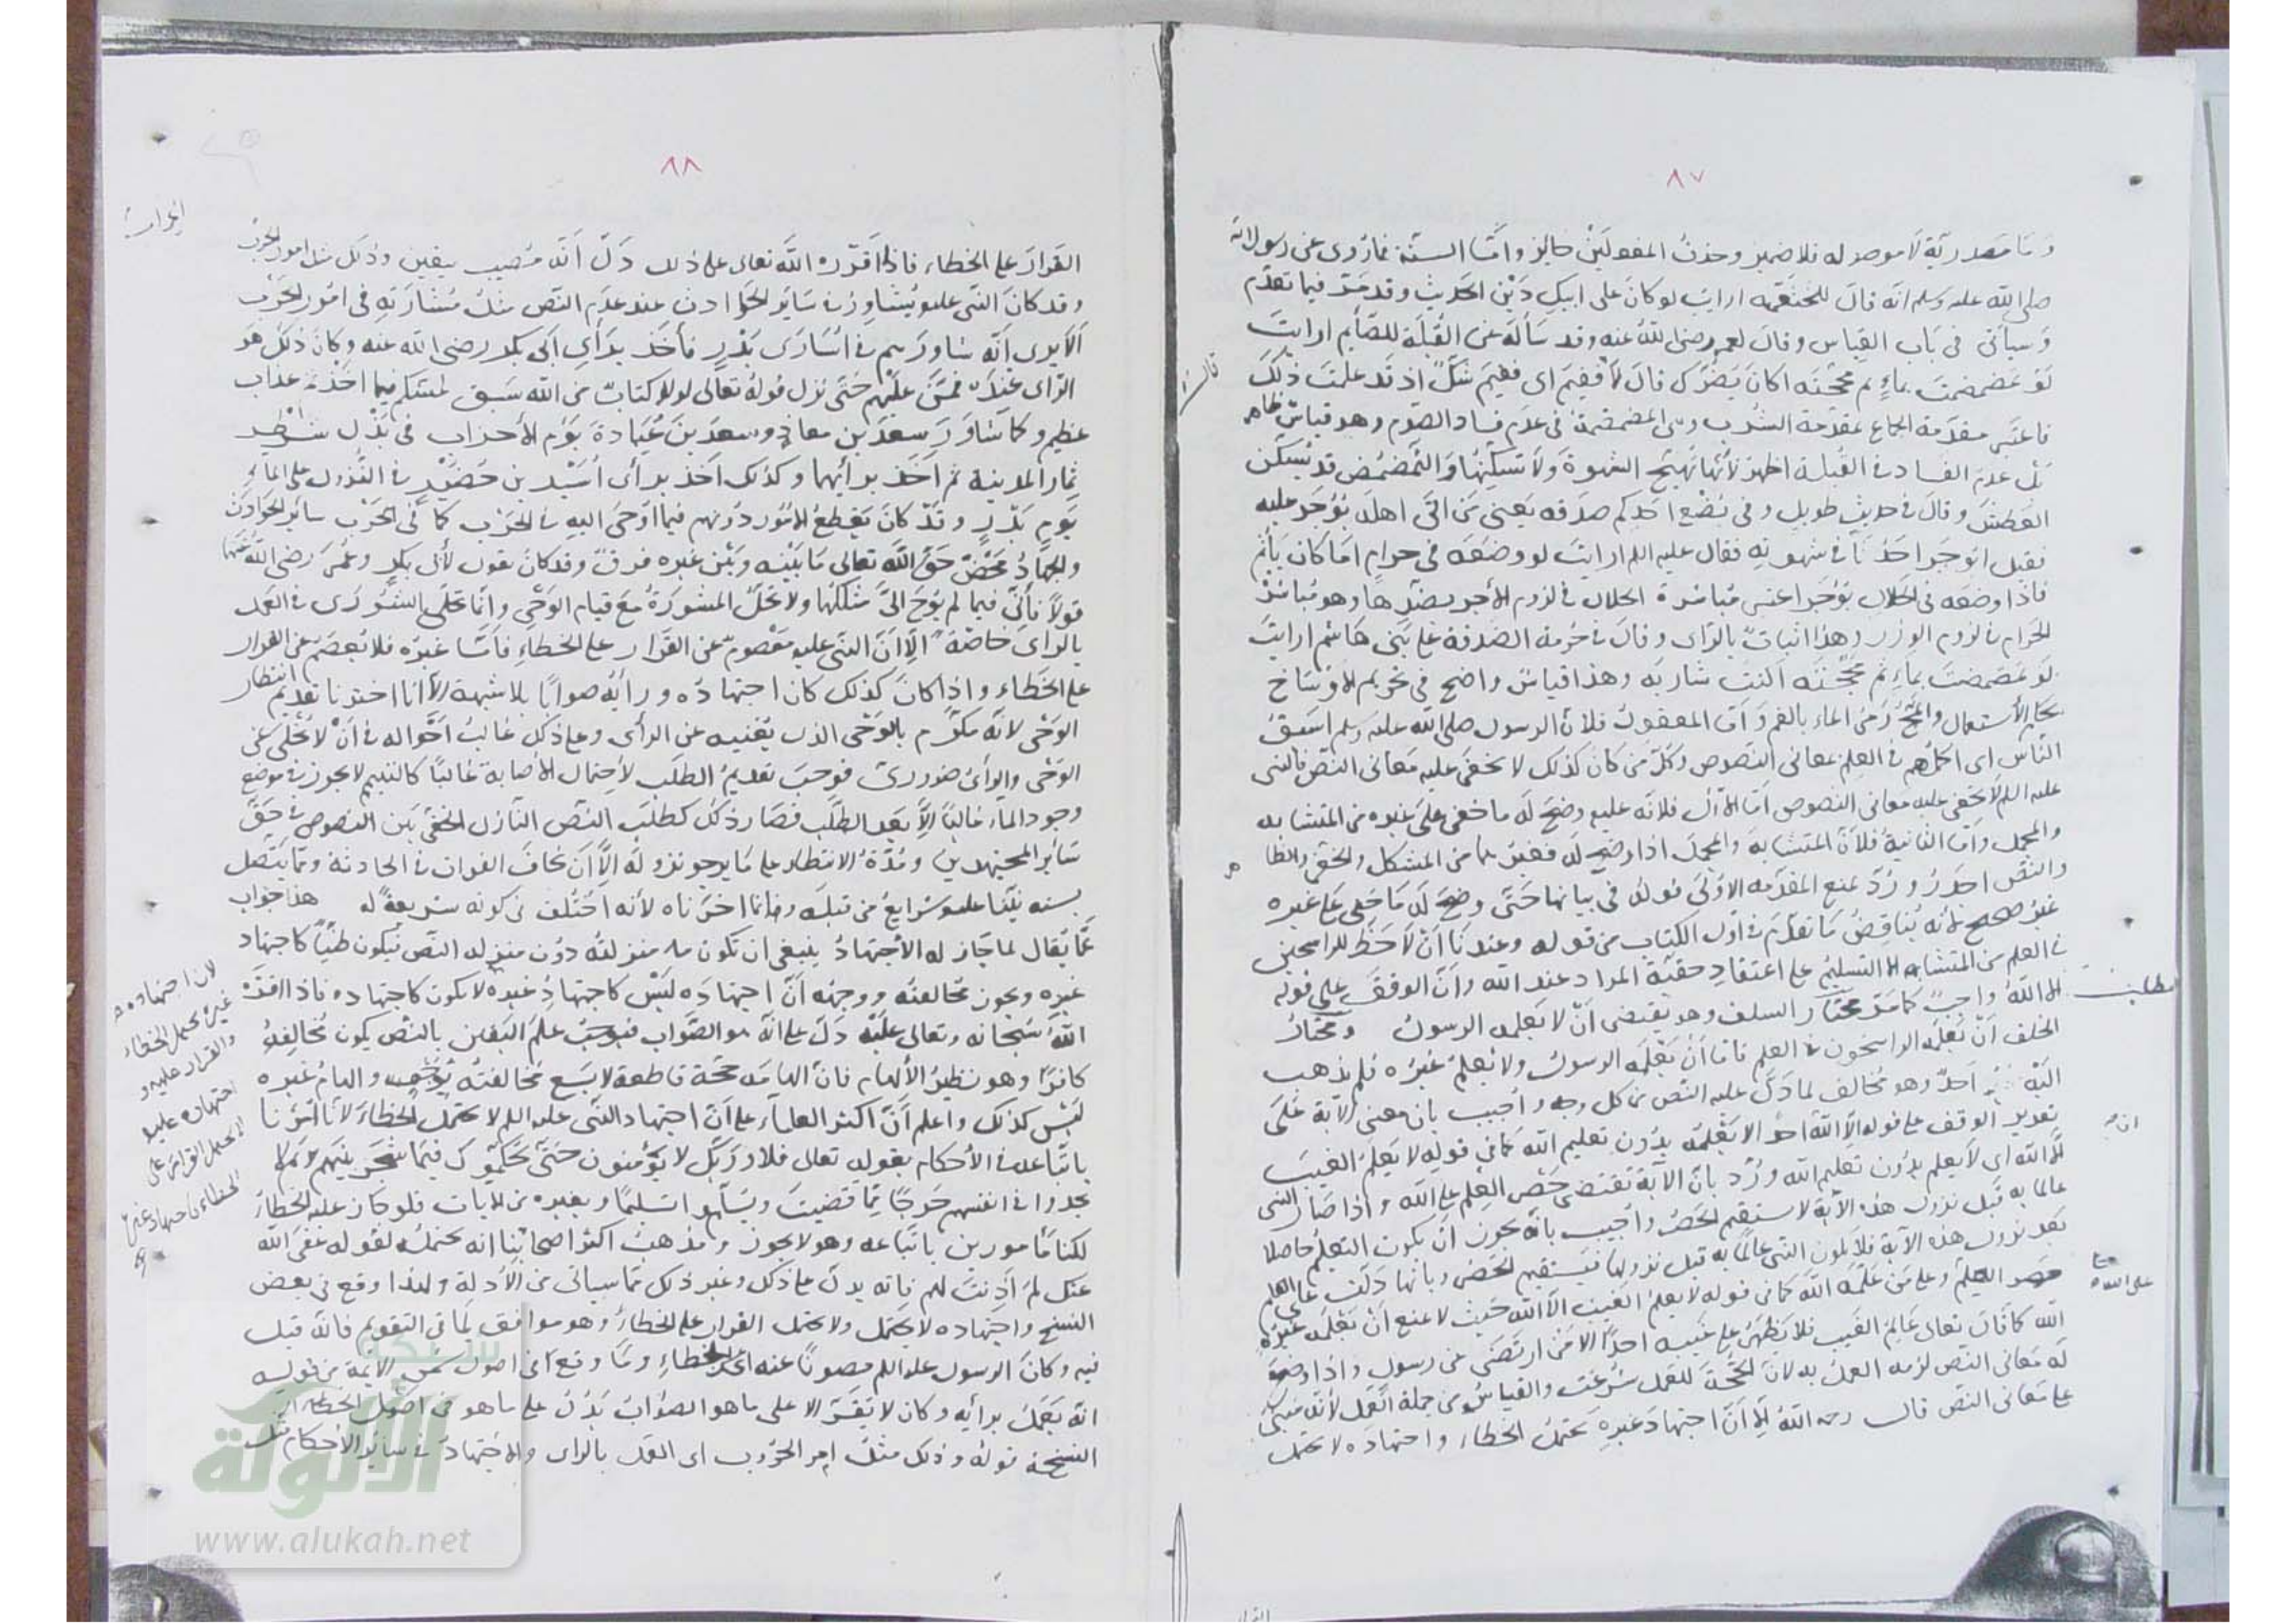 ٨٧
وما مصدرية لا موصوله فلا ضمير وحذف المفعولين جايز وامّا السنّة فما رُوى عن رسول الله
صلى الله عليه وسلم انه قال للخثعميه ارايت لو كان على ابيكِ دَيْن الحديث وقد مَرّ فيما تقدّم
وَسيأتى فى باب القياس وقال لعمر رضى الله عنه وقد سأله عن القُبلة للصّايم ارايتَ
لَو تمضمضتَ بماءٍ ثم مججته اكانَ يَضُرّك قال لا ففيمَ اى ففيمَ شكّ اذ قد علمتَ ذلك
فاعتبر مقدّمة الجماع بمقدّمة الشرب وهى المضمضة فى عدم فساد الصّوم وهو قياس ظاهر
بل عدم الفساد فى القُبلة اظهر لأنّها تُهيّج الشهوة ولا تسكّنها والتمضمُض قد يُسَكّن
العَطش وقال فى حديث طويل وفى بُضع احدكم صدقه يعنى مَن اتى اهله يُؤجر عليه
فقيل ايُوجَر احدُنا فى شهوته فقال عليه السلم ارايتَ لو وضعَه فى حرامٍ امَا كان يأثم
فاذا وضعه فى الحلال يُؤجَر اعتبر مُباشرة الحلال فى لزوم الأجر بضدّها وهو مُباشرة
الحَرام فى لزوم الوزر وهذا اثباتٌ بالرّاى وقال فى حُرمة الصَدقة على بَنى هَاشم ارايتَ
لَو تمضمضتَ بماءٍ ثم مَججتَه اكنتَ شاربَه وهذا قياسٌ واضح فى تحريم الاوسَاخ
بحكم الأستعمال والمَجّ رَمىُ الماء بالفم وامّا المعقولُ فلأنّ الرسول صلى الله عليه وسلم اسبَقُ
النّاس اى اكملُهم فى العِلم بمعانى النّصوص وكلّ مَن كان كذلك لا يخفى عليه مَعانى النّص فالنبى
عليه السلم لا يخفى عليه معانى النصوص امّا الأول فلانّه عليه وضَح له ما خفى على غيره من المتشابه
والمجمل وامّا الثانيةُ فلأنّ المتشابه والمجمل اذا وضح له فغيرهما من المشكل والخفى والظاهر
والنصّ اجدَرُ ورُدّ بمنع المقدّمه الاولى قوله فى بيانها حتّى وضح له مَا خفى على غيره
غيرُ صحيح لأنه يُناقِضُ مَا تقدّم فى اوّل الكتاب من قوله وعندنا أنْ لا حَظّ للراسخين
فى العلم من المتشابه الا التسليم على اعتقادِ حقّية المراد عند الله وأنّ الوقفَ على قوله
الا اللهُ واجبٌ كما مرّ مختار السلف وهو يقتضى أنْ لا يعلمه الرسولُ ومختارُ
الخلف أنْ يعلمَه الراسخون فى العلم فامّا أنْ يَعْلمَه الرسولُ ولا يَعْلمُ غيرُه فلم يذهب
اليه أحدٌ وهو مُخالف لما دَلّ عليه النّص من كل وجه وأُجيب بان معنى الآية عَلى
تقدير الوقف على قوله الّا اللهُ احدٌ لا يَعْلَمُه بدُون تعليم الله كما فى قوله لا يَعلمُ الغيبَ
الّا الله اى لا يعلم بدُون تعليم الله ورُدّ بانّ الآيةَ تقتضى حَصْرَ العِلم على الله واذا صَار النبى
عالمًا به قبل نزول هذه الآية لا يستقيم الحَصرُ وأُجيب بانّه يجوز أنْ يكون التعليمُ حاصلا
بعد نزول هذه الآية فلا يكون النبى عالمًا به قبل نزولها فيَستقيم الحَصرُ وبانّها دَلّت على
حصر العلم وعلى مَن علّمه الله كما فى قوله لا يعلمُ الغيبَ الّا الله حيث لا يمنع أنْ يَعْلمَه غيرُه
الله كما قال تعالى عَالِمُ الغَيب فلا يُظهِرُ على غيبه احدًا الا مَن ارتَضى من رسول واذا وضح
له مَعانى النّص لزمه العملُ به لانّ الحُجّة للعَمل شُرعَت والقياسُ من جملة العمل لأنه مَبنىّ
على معانى النص قال رحمه الله الّا أنّ اجتهادَ غيرِه يحتملُ الخطاءَ واجتهادَه لا يحتمل
قال
مطلب
على الله
٨٨
القرارَ على الخطاء فاذا أقرّه الله تعالى على ذلك دَلّ أنّه مُصيب بيقين وذلك مثل امور الحرب
وقد كانَ النّبى عليه يُشاوِر فى سَائر الحوادث عند عدم النّص مثل مُشاورَته فى امُور الحَرْب
ألا يرى أنّه شاورَهم فى اُسَارَى بَدْرٍ فأخَذ برأى ابى بكر رضى الله عنه وكانَ ذلك هو
الرّاى عندَه فمَنّ عليهم حتّى نزل قولهُ تعالى لولا كتابٌ من الله سَبق لمسّكم فيما اخذتم عذاب
عظيم وكما شاوَرَ سعدَ بن معاذٍ وسعدَ بنَ عُبَادة يَوم الأحزاب فى بَذْل شطر
ثمار المدينة ثم أخَذ برأيهما وكذلك أخذ برأى أُسَيْد بن حُضَيْرٍ فى النُّزول على الماءِ
يَوم بَدْرٍ وقَدْ كانَ يَقطَعُ الأمورَ دُونهم فيما اَوحَى اليهِ فى الحَرْب كما فى سائر الحَوادث
والجهادُ مَحْضُ حَقّ اللهِ تعالى مَا بَيْنه وبَيْن غيره فرقٌ وقد كانَ يقول لأبى بكرٍ وعُمرَ رضى الله عنهما
قولا فأنّى فيما لم يُوحَ الىّ مثلكُما ولا تحلّ المشورَةُ مَع قيام الوَحْى وانّما تحلّ الشُّورَى فى العَمل
بالرّاىَ خاصّة الّا أنّ النّبى عليه مَعصومٌ عن القَرار على الخطاءِ فامّا غيرُه فلا يُعصَم عن القرار
على الخطَاء واذا كانَ كذلك كان اجتهادُه ورأيُه صوابًا بلا شبهة الّا أنّا اخترنا تقديم انتظار
الوَحْى لانّه مُكَرّم بالوَحْى الذى يُغنيه عن الرأى وعلى ذلك غالبُ أحْواله فى أنْ لا يُخْلى عن
الوَحْى والرأىُ ضرورىّ فوجبَ تقديمُ الطلَب لأحتمال الأصابة غالبًا كالتيمم لا يجوز فى موضع
وجود الماء غالبًا الّا بَعد الطلَب فصَار ذلك كطلب النّص النّازل الخفى بَين النّصوص فى حَقّ
سَائر المجتهدين ومُدّةُ الانتظار على مَا يرجو نزوله الّا أنْ يخافَ الفوات فى الحادثة وممّا يتّصل
بسنه نبيّنا عليه شرايعُ من قبلَه وانما اخّرناه لأنه اختُلف فى كونه شريعةً له هذا جواب
عمّا يُقال لما جَاز له الأجتهادُ ينبغى ان تكون منزلتُه دُون منزله النّص فيكون ظنّيًا كاجتهاد
غيره ويجوز مُخالفتُه ووجهُه أنّ اجتهادَه لَيْسَ كاجتهادِ غيره لا يكون كاجتهاده فاذا اقرّه
اللهُ سُبحانه وتعالى عليه دَلّ على أنّه هو الصّواب فيوجبُ علمَ اليَقين بالنّص يكون مُخالِفهُ
كافرًا وهو نظيرُ الألهام فانّ الهامَه حُجّة قاطعة لا يسَع مُخالفتُه بوجه والهامُ غيره
لَيْس كذلك واعلم أنّ اكثر العلماءِ على أنّ اجتهادَ النّبى عليه السلم لا يحتمل الخطاءَ لأنّا أُمِرنا
باتّباعه فى الأحكام بقوله تعالى فلا وربّك لا يؤمنون حتّى يُحَكّموك فيمَا شجر بينهم ثم لا
يجدوا فى انفسهم حَرجًا ممّا قضيتَ ويُسَلّموا تسليمًا وبغيره من الايات فلو جاز عليه الخطاءُ
لكنّا مأمورين باتّباعه وهو لا يجوز ومذهبُ اكثر اصحابنا انه يحتملُ لقوله عفَى الله
عنك لمَ أذِنتَ لهم فانه يدلّ على ذلك وغير ذلك ممّا سياتى من الأدلة ولهذا وقع فى بعض
النسخ واجتهاده لا يحتمل ولا يحتمل القرار على الخطاءِ وهو موافق لما فى التقويم فانّه قيل
فيه وكانَ الرسول عليه السلم مصونًا عنه اى عن الخطاءِ وما وقع فى اصول شمس الأيمة من قوله
انّه يَعْملُ برأيه وكان لا يُقَرّ الا على ما هو الصّوابُ يَدُلّ على ما هو فى
النسخة قوله وذلك مثلُ امر الحُرُوب اى العمل بالراى والاجتهادُ فى سائر الأحكام مثل
لان اجتهاده
غيره يحتمل الخطاء
والقرار عليه و
اجتهاده عليه
لا يحتمل القرار على
الخطاء
الألوكة
www.alukah.net